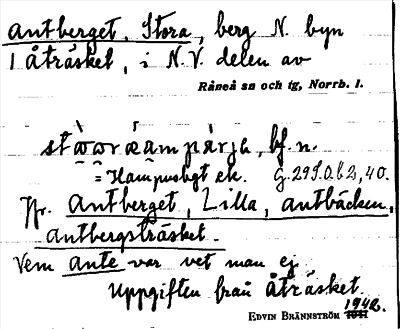 Antberget, Stora, berg N. byn
1 Åträsket, i N.V. delen av
Råneå sn och tg, Norrb. l.
bf. n.
= Hampusligt ek. G. 295.0.b2, 40.
Jfr. Antberget, Lilla, Antbäcken,
Antbergsträsket.
Vem Ante var vet man ej
Uppgiften från Åträsket.
1942.
EDVIN BRÄNNSTRÖM